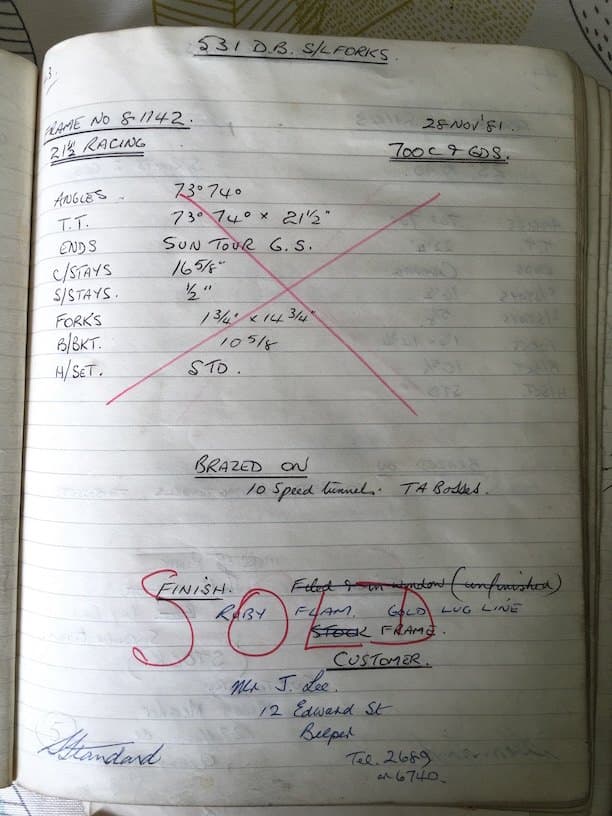 531 D.B. S/L FORKS.
3.
FRAME NO 81142.
28 NOV '81.
21½ RACING
700C & GDS.
ANGLES 73° 74°
T.T. 73° 74° × 21½"
ENDS SUN TOUR G.S.
C/STAYS 16 5/8"
S/STAYS. ½"
FORKS 1 3/4" × 14 3/4"
B/BKT. 10 5/8
H/SET. STD.
BRAZED ON
10 Speed tunnels. TA Bosses.
FINISH. Filed & in window (unfinished)
RUBY FLAM. GOLD LUG LINE
STOCK FRAME.
SOLD
CUSTOMER.
Mr J. Lee.
12 Edward St
Belper
Standard
Tel. 2689
or 6740.